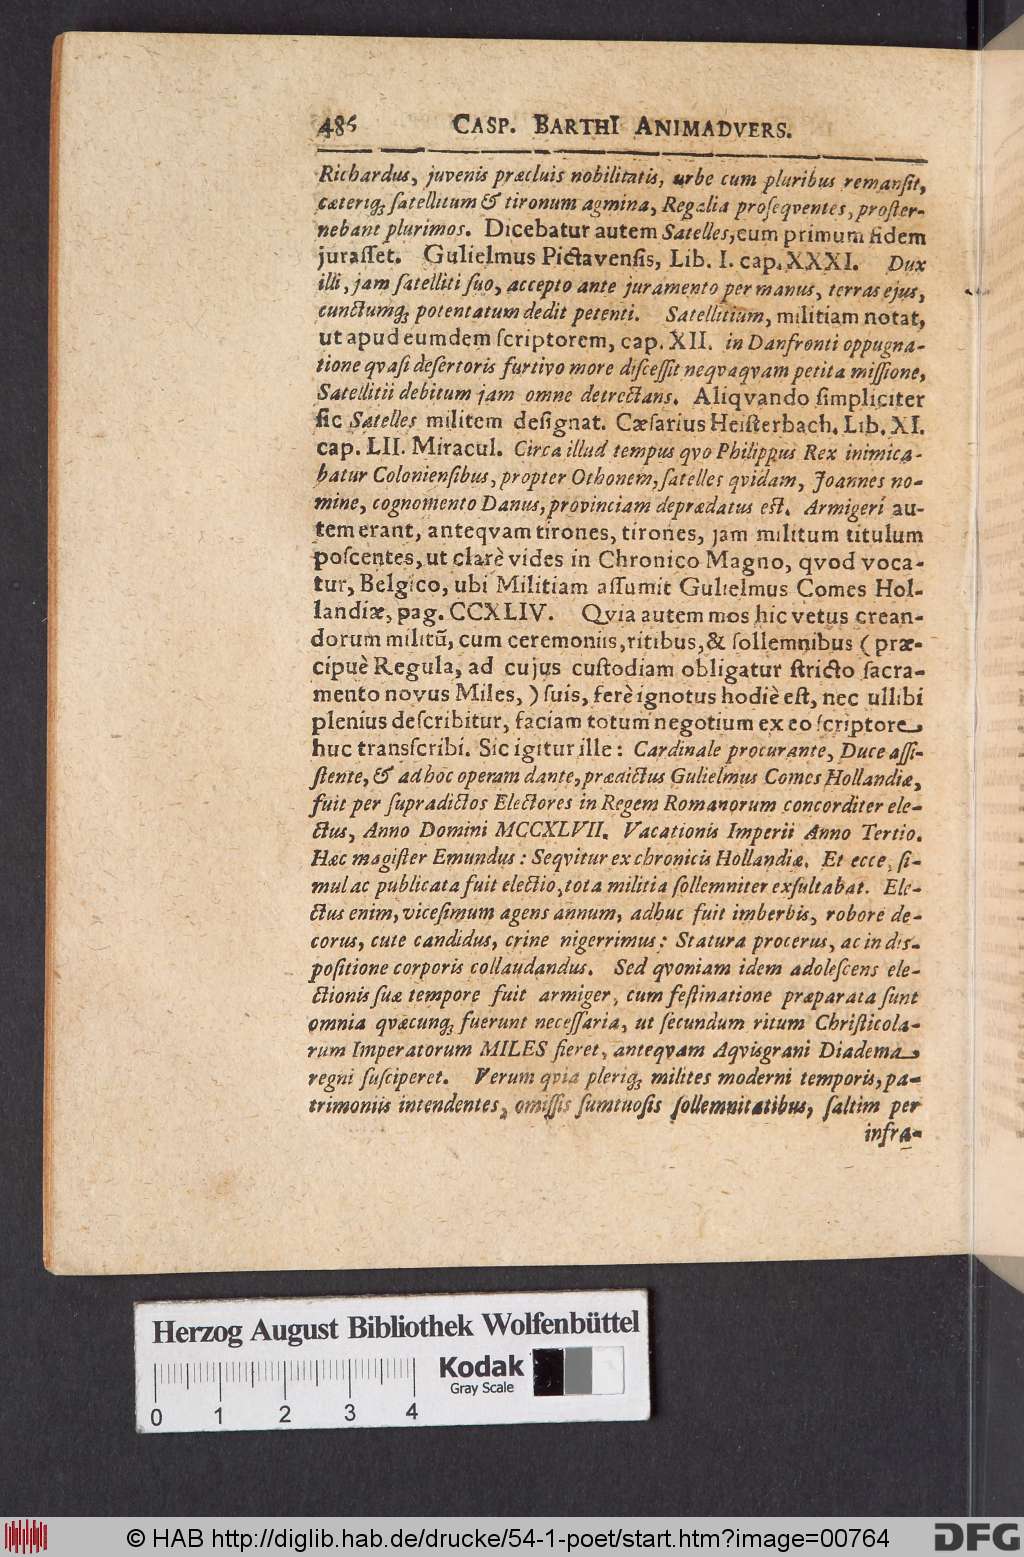 486 CASP. BARTHI ANIMADVERS.
Richardus, juvenis præcluis nobilitatis, urbe cum pluribus remansit,
cæteriq; satellitum & tironum agmina, Regalia proseqventes, proster-
nebant plurimos. Dicebatur autem Satelles, cum primum fidem
jurasset. Gulielmus Pictavensis, Lib. I. cap. XXXI. Dux
illi, jam satelliti suo, accepto ante juramento per manus, terras ejus,
cunctumq; potentatum dedit petenti. Satellitium, militiam notat,
ut apud eumdem scriptorem, cap. XII. in Danfronti oppugna-
tione qvasi desertoris furtivo more discessit neqvaqvam petita missione,
Satellitii debitum jam omne detrectans. Aliqvando simpliciter
sic Satelles militem designat. Cæsarius Heisterbach. Lib. XI.
cap. LII. Miracul. Circa illud tempus qvo Philippus Rex inimica-
batur Coloniensibus, propter Othonem, satelles qvidam, Joannes no-
mine, cognomento Danus, provinciam deprædatus est. Armigeri au-
tem erant, anteqvam tirones, tirones, jam militum titulum
poscentes, ut clarè vides in Chronico Magno, qvod voca-
tur, Belgico, ubi Militiam assumit Gulielmus Comes Hol-
landiæ, pag. CCXLIV. Qvia autem mos hic vetus crean-
dorum militũ, cum ceremoniis, ritibus, & sollemnibus (præ-
cipuè Regula, ad cujus custodiam obligatur stricto sacra-
mento novus Miles,) suis, ferè ignotus hodiè est, nec ullibi
plenius describitur, faciam totum negotium ex eo scriptore
huc transscribi. Sic igitur ille: Cardinale procurante, Duce assi-
stente, & ad hoc operam dante, prædictus Gulielmus Comes Hollandiæ,
fuit per supradictos Electores in Regem Romanorum concorditer ele-
ctus, Anno Domini MCCXLVII. Vacationis Imperii Anno Tertio.
Hæc magister Emundus: Seqvitur ex chronicis Hollandiæ. Et ecce, si-
mul ac publicata fuit electio, tota militia sollemniter exsultabat. Ele-
ctus enim, vicesimum agens annum, adhuc fuit imberbis, robore de-
corus, cute candidus, crine nigerrimus: Statura procerus, ac in dis-
positione corporis collaudandus. Sed qvoniam idem adolescens ele-
ctionis suæ tempore fuit armiger, cum festinatione præparata sunt
omnia qvæcunq; fuerunt necessaria, ut secundum ritum Christicola-
rum Imperatorum MILES fieret, anteqvam Aqvisgrani Diadema
regni susciperet. Verum qvia pleriq; milites moderni temporis, pa-
trimoniis intendentes, omissis sumtuosis sollemnitatibus, saltim per
infra-
Herzog August Bibliothek Wolfenbüttel
Kodak
Gray Scale
0 1 2 3 4
© HAB http://diglib.hab.de/drucke/54-1-poet/start.htm?image=00764
DFG